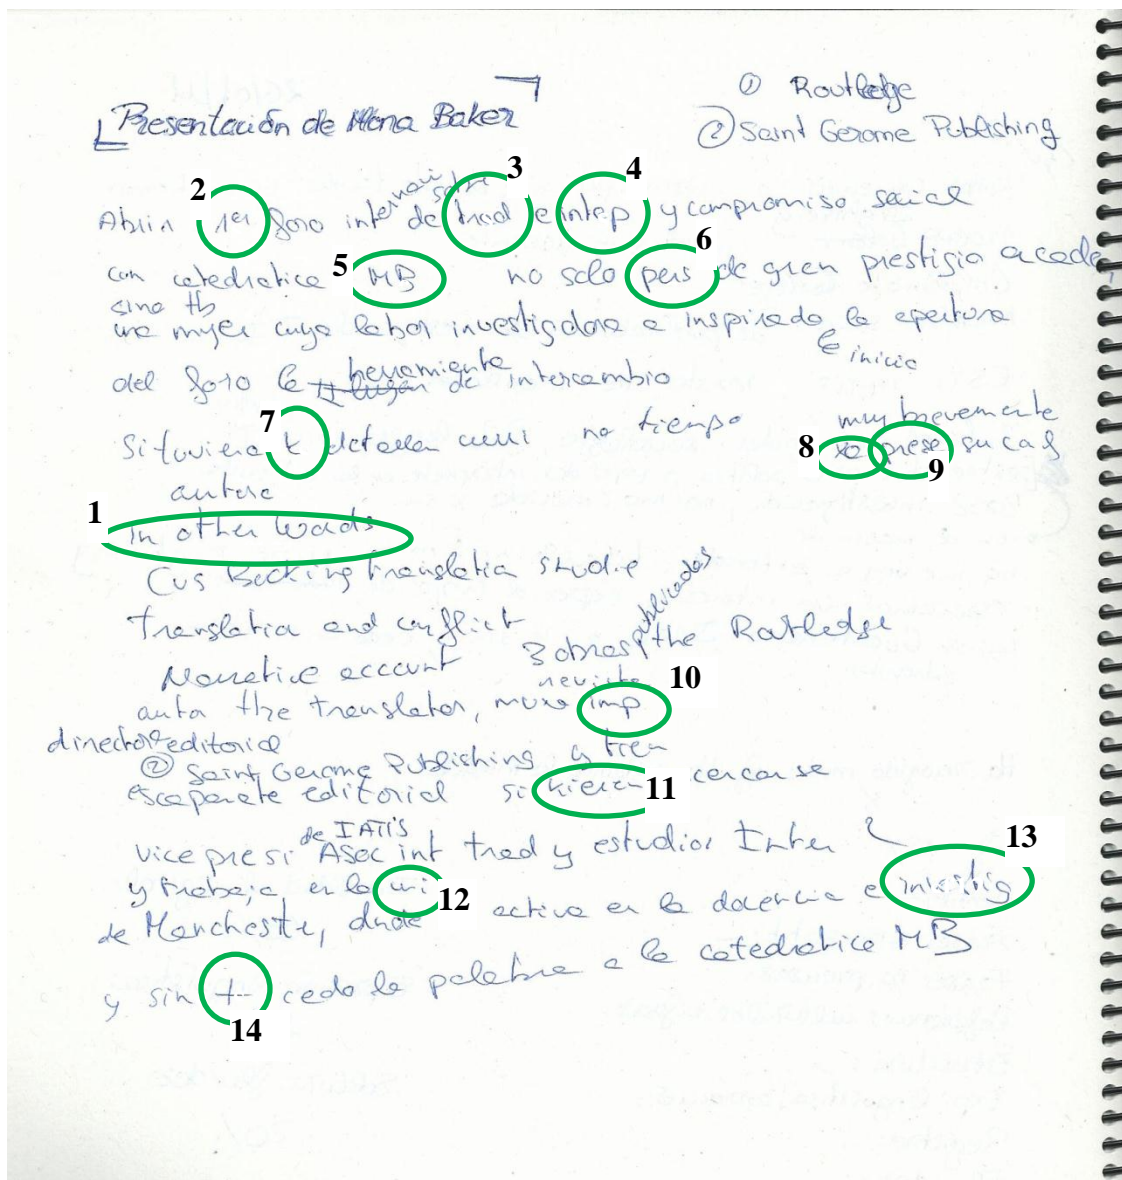 ① Routledge
Presentación de Mona Baker
② Saint Gerome Publishing
2 3 4
Abrir 1er foro internaci de sobre trad e interp y compromiso social
5 6
con catedratica MB no solo pers de gran prestigio acade
sino tb
una mujer cuya labor investigadora a inspirado la apertura
e inicio
del foro la herramienta de intercambio
7
Si tuviera k detallar no tiempo muy brevemente
8 xa prese su 9
autora
1
In other Words
translatia studie
Translatia and conflict
Narrative account 3 obras publicadas the Ratledge
revista 10
autor the translator, muxo imp
director editorial
② Saint Gerome Publishing y tien
escaparate editorial si kieren 11 cercarse
de IATIS
vicepresi Asoc int trad y estudios Inter
13
y trabaja en la uni 12 activa en la docencia e investig
de Manchester, donde
y sin +- cedo la palabra a la catedratica MB
14